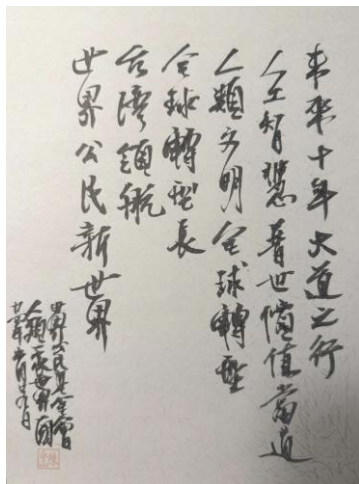 未來十年大道之行
人工智慧普世價值當道
人類文明全球轉型
全球轉型長
台灣領航
世界公民新世界
世界公民基金會
人類一家世界一國